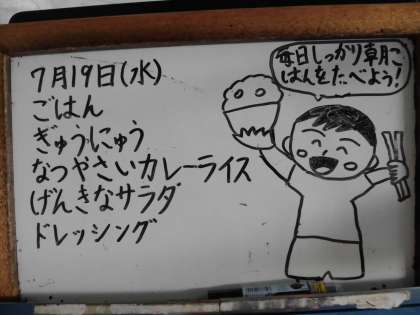 7月19日(水)
ごはん
ぎゅうにゅう
なつやさいカレーライス
げんきなサラダ
ドレッシング
毎日しっかり朝ご
はんをたべよう!